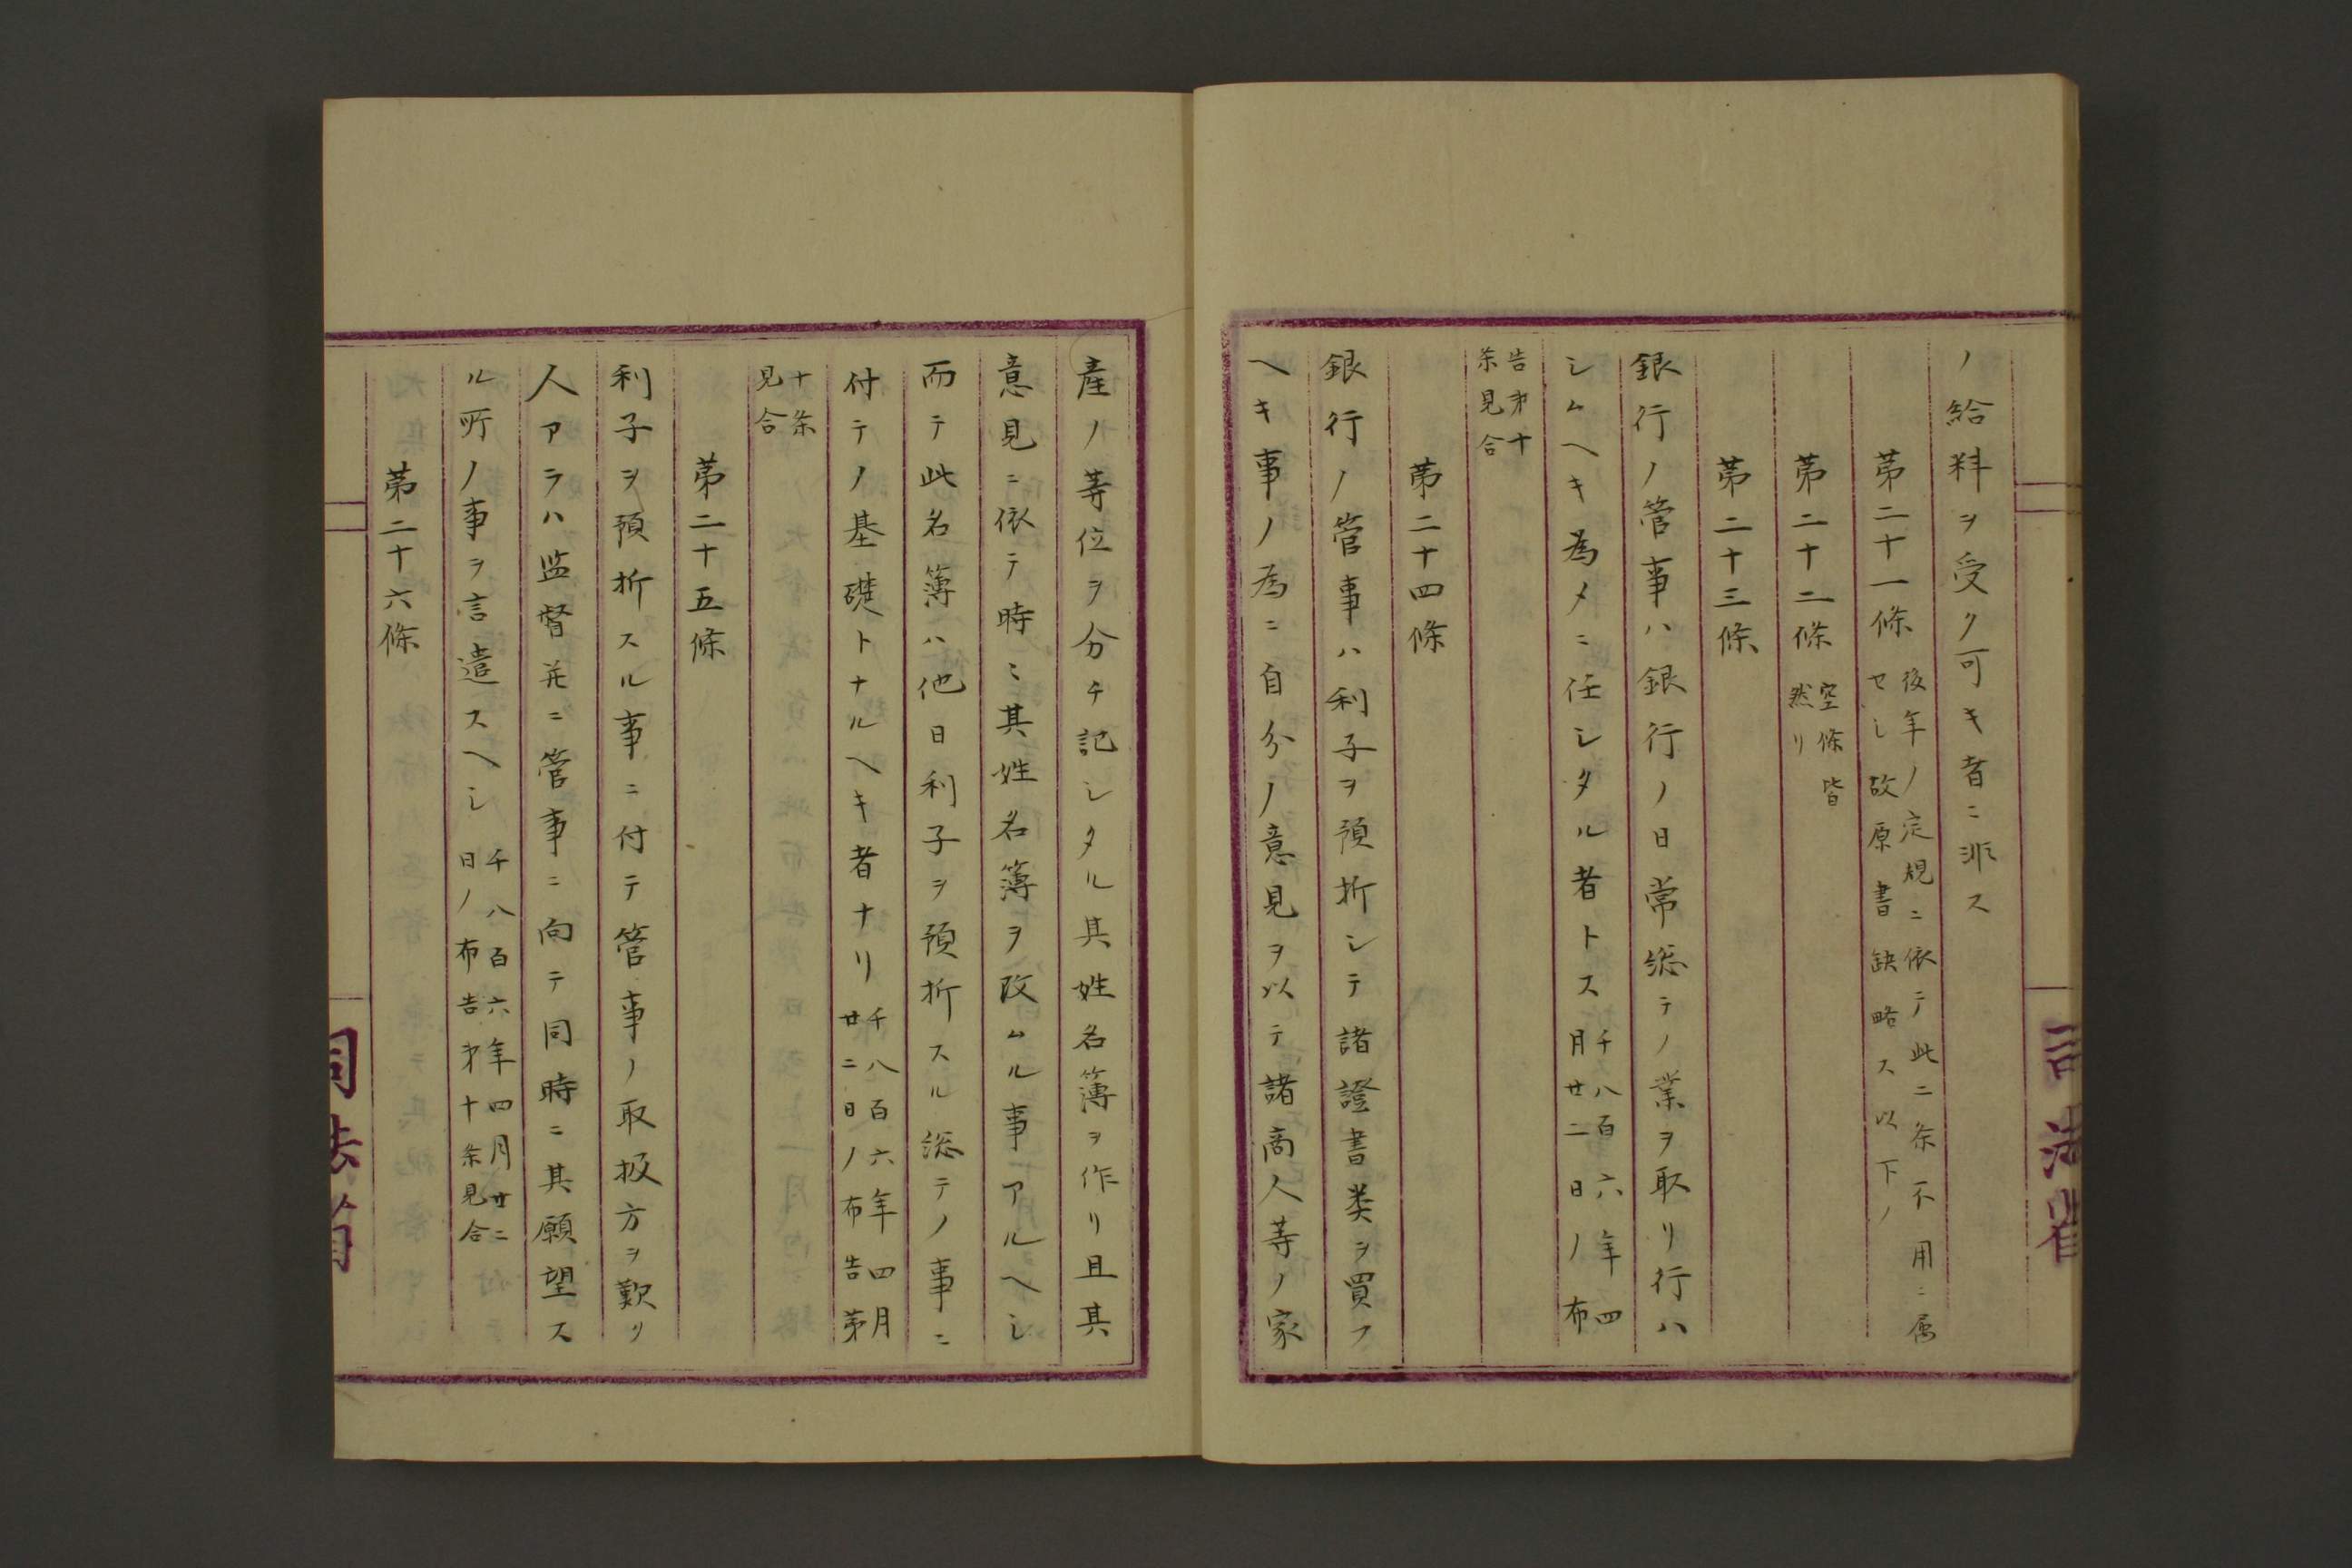 ノ給料ヲ受ク可キ者ニ非ス
第二十一條 後年ノ定規ニ依テ此二条不用ニ属
セシ故原書缺略ス以下ノ
第二十二條 空條皆
然リ
第二十三條
銀行ノ管事ハ銀行ノ日常総テノ業ヲ取リ行ハ
シムヘキ為メニ任シタル者トス 千八百六年四
月廿二日ノ布
告第十
条見合
第二十四條
銀行ノ管事ハ利子ヲ預折シテ諸證書類ヲ買フ
ヘキ事ノ為ニ自分ノ意見ヲ以テ諸商人等ノ家
司法省
産ノ等位ヲ分チ記シタル其姓名簿ヲ作リ且其
意見ニ依テ時ミ其姓名簿ヲ改ムル事アルヘシ
而テ此名簿ハ他日利子ヲ預折スル総テノ事ニ
付テノ基礎トナルヘキ者ナリ 千八百六年四月
廿二日ノ布告第
十条
見合
第二十五條
利子ヲ預折スル事ニ付テ管事ノ取扱方ヲ歎リ
人アラハ監督并ニ管事ニ向テ同時ニ其願望ス
ル所ノ事ヲ言遣スヘシ 千八百六年四月廿二
日ノ布告第十条見合
第二十六條
司法省